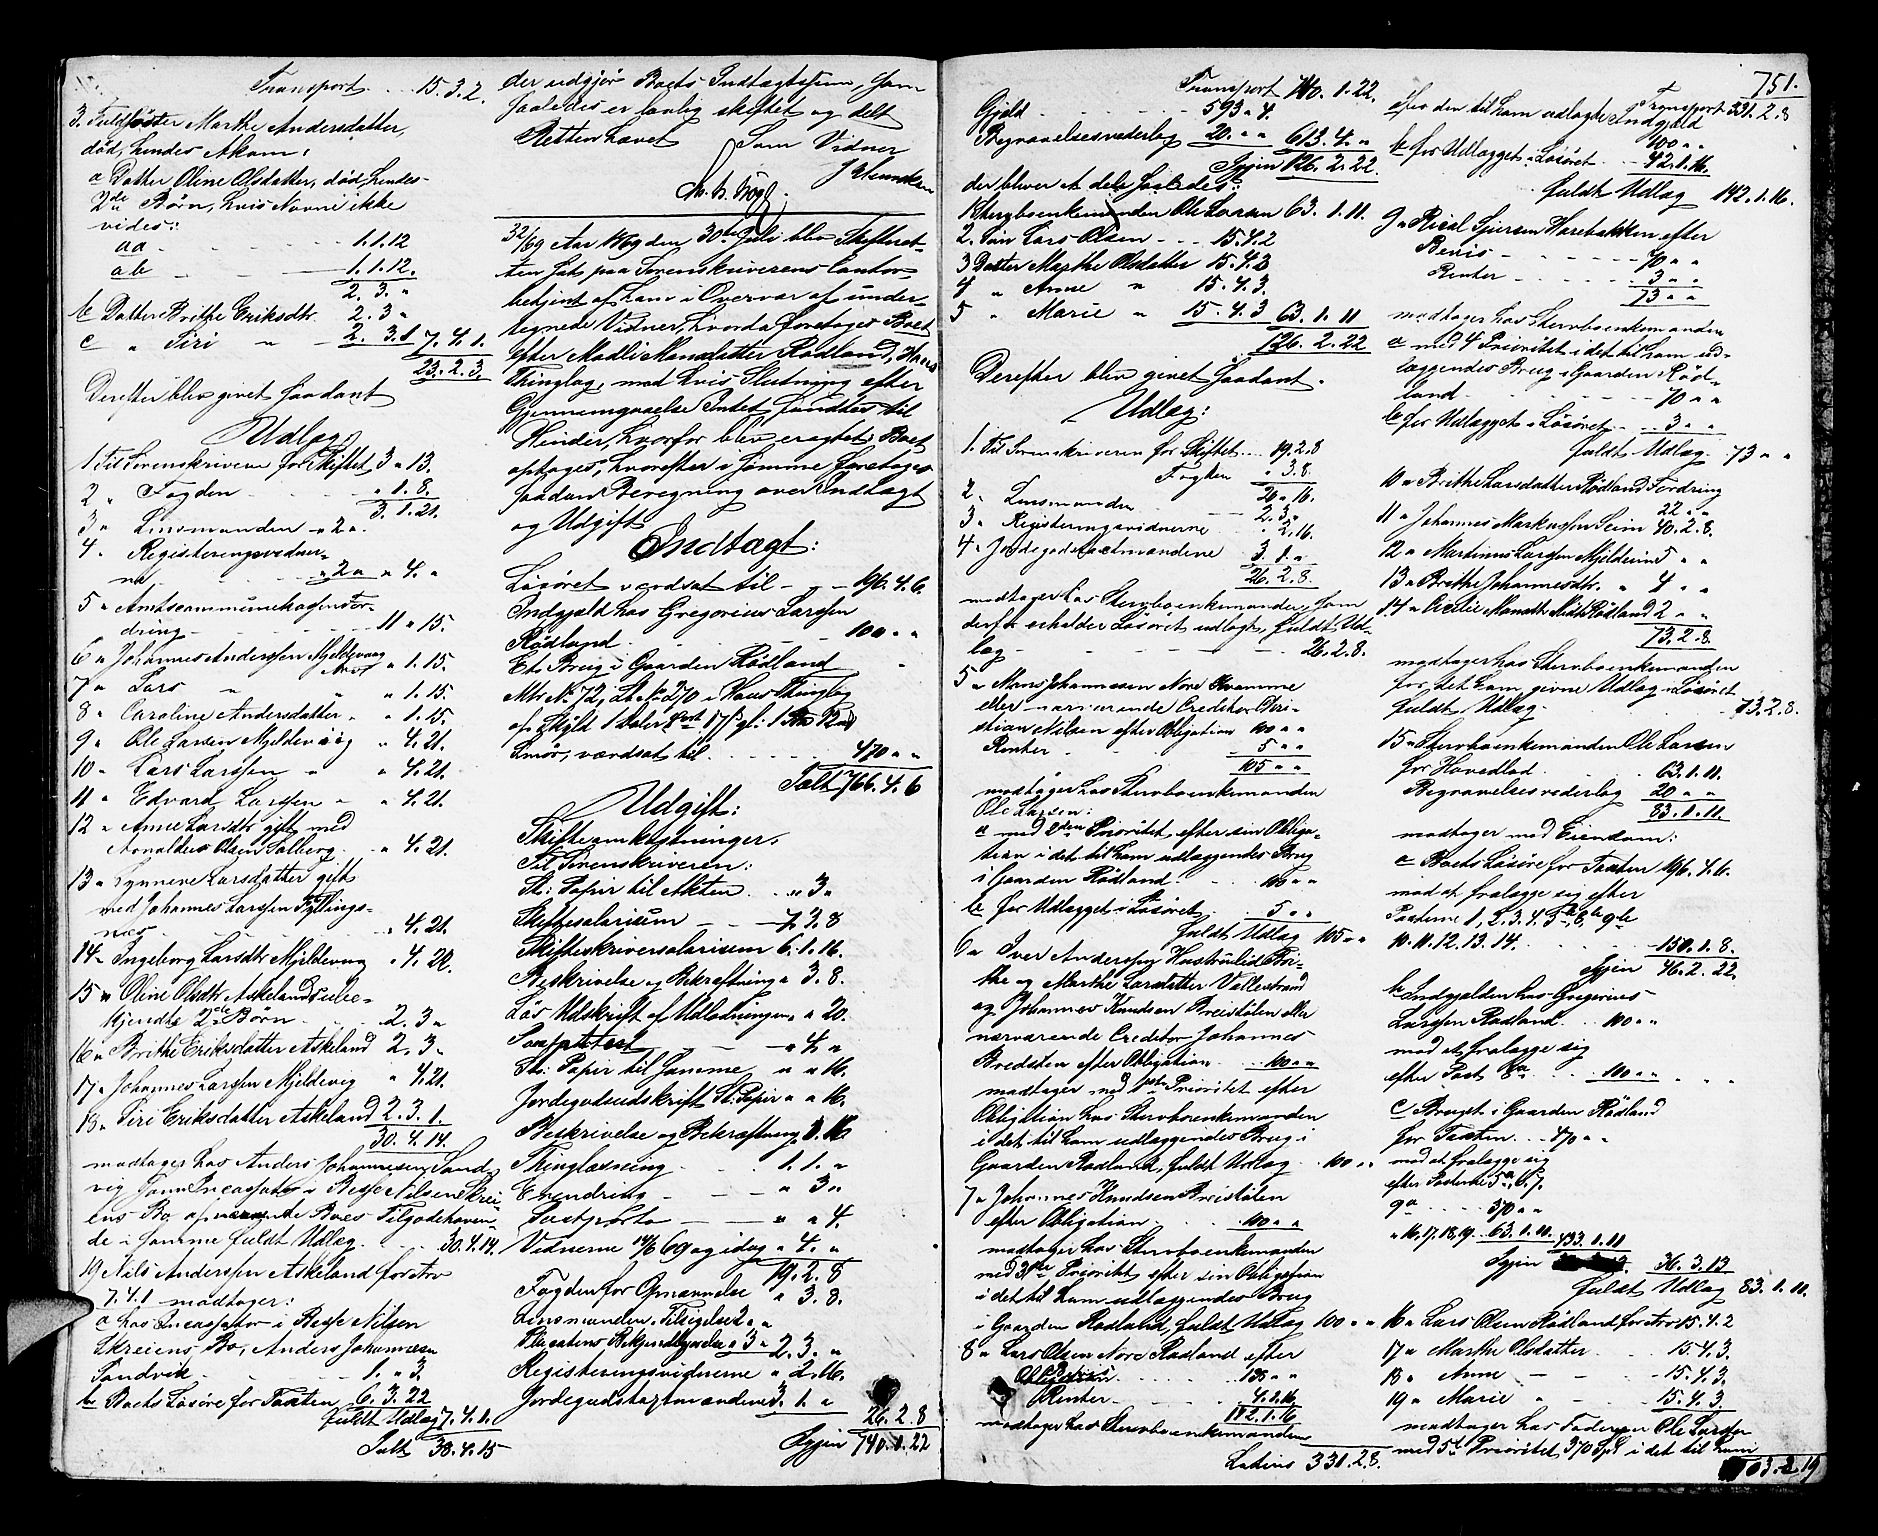 Transport . . . 15.3.2.
3. Fuldsøster Marthe Andersdatter,
død, hendes Afkom:
a Datter Oline Olsdatter, død, hendes
2de Børn, hvis Navne ikke
vides:
aa 1.1.12
ab 1.1.12.
2. 3. "
b Datter Brithe Eriksdtr. 2. 3 "
c " Siri " 2. 3. 1 7. 4. 1.
23. 2. 3.
Derefter blev givet saadant
Udlæg
1 Til Sorenskriveren for Skiftet 3 " 13.
2 " Fogden " 1. 8.
3. 1. 21.
3 " Lensmanden " 2 " .
4 " Registeringsvidner-
ne, " 2 " " 4. "
5 " Amtscommunekassen For-
dring 11 " 15.
6 " Johannes Anderssen Mjeldevaag " 1. 15.
7 " Lars " " " 1. 15.
8 " Caroline Andersdatter " " 1. 15.
9 " Ole Larsen Mjeldevig " 4. 21.
10 " Lars Larssen " " 4. 21.
11 " Edvard Larssen " " 4. 21.
12 " Anne Larsdtr gift med
Arnoldus Olsen Salberg " 4. 21.
13 " Synneve Larsdatter gift
med Johannes Larssen Fyllings-
næs " 4. 21.
14 " Ingeborg Larsdtr Mjeldevaag " 4. 20.
15 " Oline Olsdtr Askelands ube-
kjendte 2de Børn 2. 3 "
16 " Brithe Eriksdatter Askeland 2. 3 "
17 " Johannes Larssen Mjeldevig " 4. 21.
18 " Siri Eriksdatter Askeland 2. 3. 1.
30. 4. 14.
modtager hos Anders Johannesen Sand-
vig som Incassator i Besse Nilsen Skrei-
ens Bo af nærværende Boes Tilgodehaven-
de i samme fuldt Udlæg 30. 4. 14.
19 Nils Anderssen Askeland for Arv
7. 4. 1 modtager:
a hos Incassator i Besse Nilsen
Skreiens Bo, Anders Johannesen
Sandvik 1. " 3.
b Boets Løsøre for Taxten 6. 3. 22
fuldt Udlæg 7. 4. 1.
Talt 38. 4. 15
der udgjør Boets Indtægtssum, som
saaledes er lovlig skiftet og delt
Retten hævet Som Vidner
32/69 Aar 1869 den 30te Juli blev Skifteret-
ten sat paa Sorenskriverens Contor
betjent af ham i Overvær af under-
tegnede Vidner, hvorda foretoges Boet
efter Madli Monsdatter Rødland, Haus
Thinglag, med hvis Slutning efter
Gjennemgaaelse Intet fandtes til
Hinder, hvorfor blev eragtet: Boet
optages, hvorefter i samme foretoges
saadan Beregning over Indtægt
og Udgift
Indtægt:
Løsøret værdsat til 196. 4. 6
Indgjæld hos Gregorius Larssen
Rødland 100 " "
Et Brug i Gaarden Rødland
Mtr No 72, Lb No 270 i Haus Thinglag
af Skyld 1 Daler
Smør, værdsat til 470 " "
Talt 766. 4. 6
Udgift:
Skifteomkostninger.
Til Sorenskriveren:
St: Papir til Akten " 3 "
Skiftesalarium 7. 3. 8
Skifteskriversalarium 6. 1. 16.
Beskrivelse og Bekræftning " 3. 8.
Løs Udskrift af Udlodningen " " 20.
" 4. "
St: Papir til samme " " 16.
Jordegodsudskrift St: Papir " " 16.
Beskrivelse og Bekræftning 1. 16.
Thinglæsning 1. 1. "
" 3 "
Postporto " " 4.
Vidnerne 14/6 69 og idag " 4. "
19. 2. 8
Fogden for Opnævnelse " 3. 8.
Lensmanden Tilsigelse 2 " "
Placatens Bekjendtgjørelse " 3 " 2. 3. "
Registeringsvidnerne " 2. 16.
Jordegodstaxtmændene 3. 1. " 26. 2. 8
Igjen 740. 1. 22
Transport 740. 1. 22.
Gjæld 593 " 4.
Begravelsesvederlag 20. " " 613. 4. "
Igjen 126. 2. 22.
der bliver at dele saaledes:
1 Stervboenkemanden Ole Larsen 63. 1. 11.
2. Søn Lars Olsen 15. 4. 2
3 Datter Marthe Olsdatter 15. 4. 3
4 " Anne " 15. 4. 3.
5 " Marie " 15. 4. 3 63. 1. 11
126. 2. 22
Derefter blev givet saadant.
Udlæg:
1. Til Sorenskriveren for Skiftet 19. 2. 8
Fogden " 3. 8.
20. " 16.
2. Lensmanden 2. 3. "
3 " Registeringsvidnerne " 2. 16.
4 " Jordegodstaxtmændene 3. 1. "
26. 2. 8.
modtager hos Stervboenkemanden, som
derfor erholder Løsøret udlagt, fuldt Ud-
læg 26. 2. 8.
5 " Mons Johannessen Nore Kvamme
eller nærværende Creditor Chri-
stian Nilsen efter Obligation 100 " "
Renter 5 " "
105 " "
modtager hos Stervboenkemanden
Ole Larsen:
a med 2den Prioritet, efter sin Obliga-
tion i det til ham udlæggendes Brug
i Gaarden Rødland 100 " "
b for Udlægget i Løsøret 5 " "
fuldt Udlæg 105 " "
6 " Iver Anderssen Hustru Bri-
the og Marthe Larsdatter Vallestrand
og Johannes Knudsen Breistølen eller
nærværende Creditor Johannes
Bredsten efter Obligation 100 " "
modtager med 1ste Prioritet efter
Obligation hos Stervboenkemanden
i det til ham udlæggendes Brug i
Gaarden Rødland, fuldt Udlæg 100 " "
7 " Johannes Knudsen Breistølen
efter Obligation 100 " "
modtager hos Stervboenkemanden
med 3die Prioritet efter sin Obligation
i det til ham udlæggendes Brug
i Gaarden Rødland, fuldt Udlæg 100 " "
8 " Lars Olsen Nore Rødland efter
138 " "
Renter 4. 1. 16.
142. 1. 16
modtager hos Stervboenkemanden
Lateris 331. 2. 8.
751.
Transport 331. 2. 8
a for den til ham udlagte Indgjæld
100 " "
b for Udlægget i Løsøret 42. 1. 16.
fuldt Udlæg 142. 1. 16.
9 " Rical Sjursen Harebakken efter
Bevis 70 " "
Renter 3 " "
73 " "
modtager hos Stervboenkemanden
a med 4 Prioritet i det til ham ud-
læggendes Brug i Gaarden Rød-
land 70 " "
b for Udlægget i Løsøret 3 " "
fuldt Udlæg 73 " "
10 " Brithe Larsdatter Rødland Fordring
22 " "
11 " Johannes Markussen Seim 40. 2. 8.
12 " Martinus Larssen Mjelderind 5 " "
13 " Brithe Johannesdtr. " 4 " "
14 " Cicilie Monsdtr. Midt Rødland 2 " "
73. 2. 8
modtager hos Stervboenkemanden
for det ham givne Udlæg i Løsøret
fuldt Udlæg 73. 2. 8.
15 " Stervboenkemanden Ole Larsen
for Hovedlod 63. 1. 11.
Begravelsesvederlag 20 " "
83. 1. 11.
modtager med Eiendom:
a Boets Løsøre for Taxten 196. 4. 6.
mod at fralægge sig efter
Posterne 1, 2. 3. 4. 5b, 8b 9b
10. 11. 12. 13. 14. 150. 1. 8.
Igjen 46. 2. 22.
b Indgjælden hos Gregorius
Larssen Rødland 100 " "
mod at fralægge sig
efter Post 8a 100 " " " "
c Bruget i Gaarden Rødland
for Taxten 470 " "
mod at fralægge sig
efter Posterne 5a, 6. 7.
9a 370 " "
" 16, 17, 18, 19. 63. 1. 11.
433. 1. 11
Igjen 36. 3. 13
fuldt Udlæg 83. 1. 11.
16 " Lars Olsen Rødland for Arv 15. 4. 2
17 " Marthe Olsdatter 15. 4. 3.
18 " Anne 15. 4. 3.
19 " Marie " 15. 4. 3
modtager hos Faderen Ole Larsen
med 5te Prioritet 370 Spd i det til ham
703. 2. 19